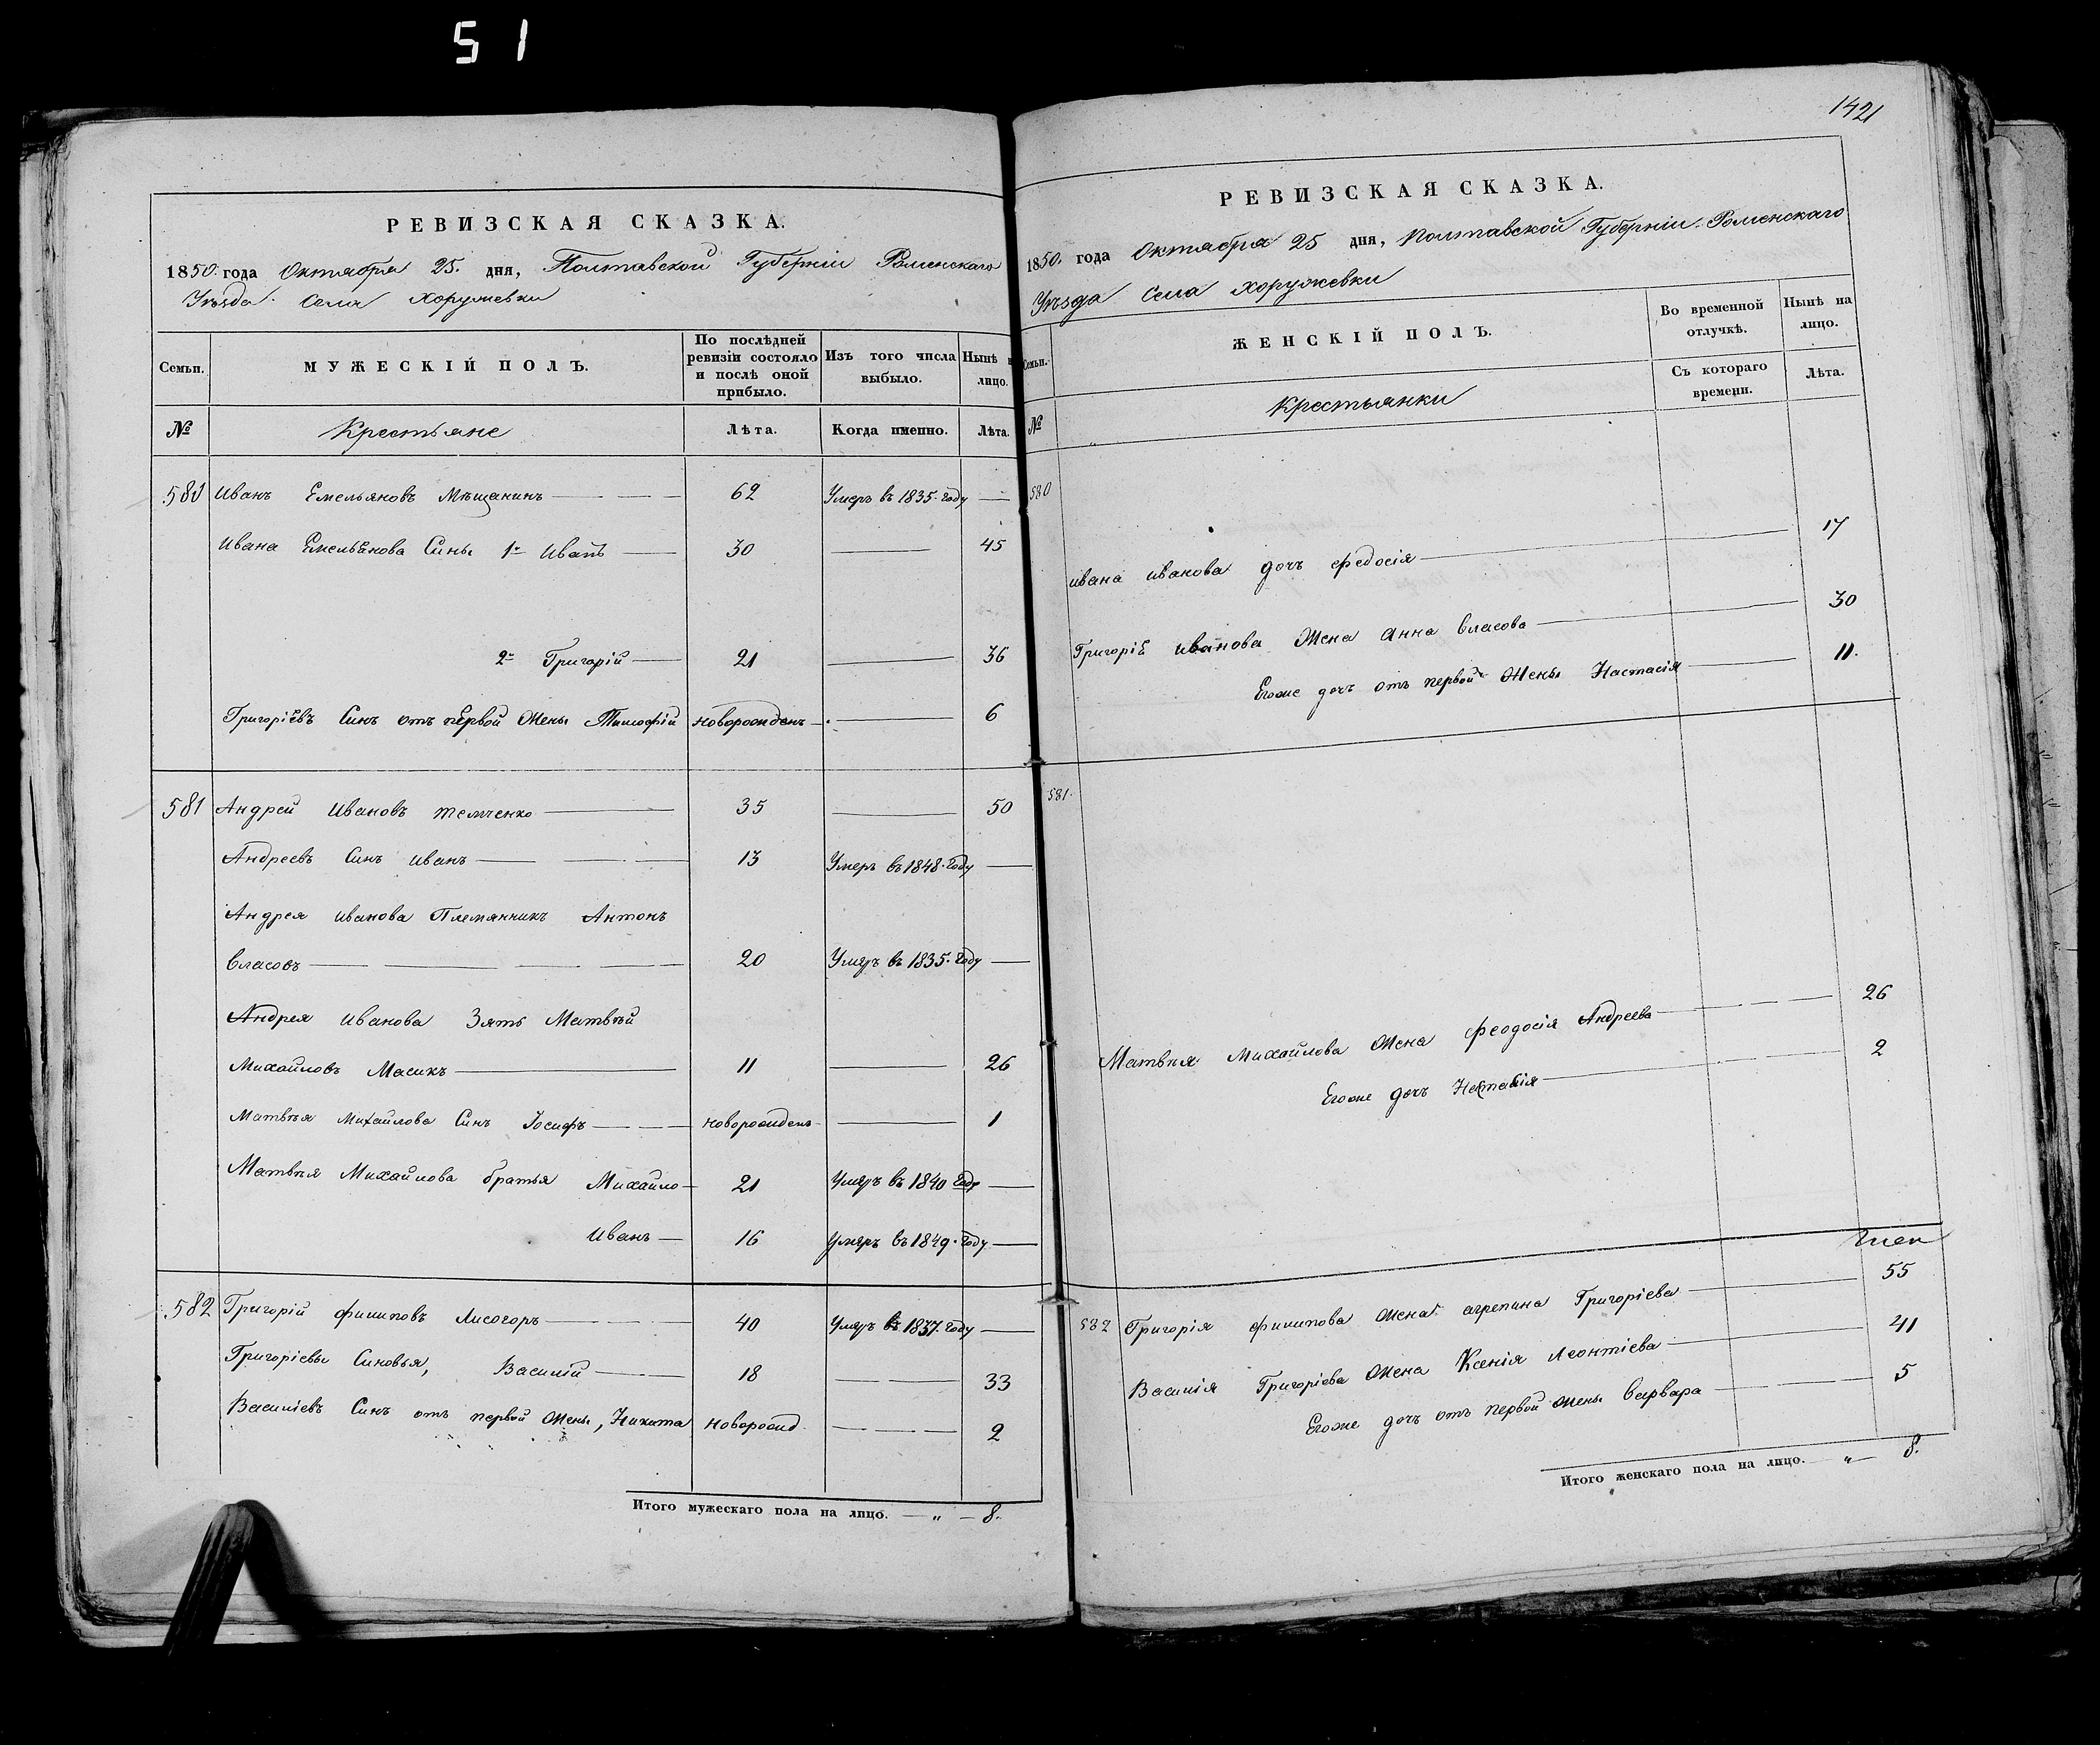 51
РЕВИЗСКАЯ СКАЗКА.
1850 года Октября 25. дня, Полтавской Губерніи Роменскаго
Уѣзда Села Хоружевки
Семьи.
МУЖЕСКІЙ ПОЛЪ.
По послѣдней ревизіи состояло и послѣ оной прибыло.
Изъ того числа выбыло.
Нынѣ н лицо.
№ Крестьяне Лѣта. Когда именно. Лѣта.
580 Иванъ Емельяновъ Мѣщанинъ — 62 Умеръ въ 1835 году —
Ивана Емельянова Сины 1й Иванъ — 30 — 45
2й Григорій — 21 — 36
Григоріевъ Синъ отъ первой Жены Тимофій новорожденъ — 6
581 Андрей Ивановъ Темченко — 35 — 50
Андреевъ Синъ Иванъ — 13 Умеръ въ 1848 году —
Андрея Иванова Племянникъ Антонъ
Власовъ — 20 Умеръ въ 1835 году —
Андрея Иванова Зять Матвѣй
Михайловъ Масикъ — 11 — 26
Матвѣя Михайлова Синъ Іосифъ — новорожденъ — 1
Матвѣя Михайлова братья Михайло — 21 Умеръ въ 1840 году —
Иванъ — 16 Умеръ въ 1849 году —
582 Григорій Филиповъ Лисогоръ — 40 Умеръ въ 1837 году —
Григоріевы Синовья, Василій — 18 — 33
Василіевъ Синъ отъ первой Жены, Никита новорожд. — 2
Итого мужескаго пола на лицо. — „ — 8.
1421
РЕВИЗСКАЯ СКАЗКА.
1850. года Октября 25 дня, Полтавской Губерніи Роменскаго
Уѣзда Села Хоружевки
Семьи.
ЖЕНСКІЙ ПОЛЪ.
Во временной отлучкѣ.
Нынѣ на лицо.
№ Крестьянки Съ котораго времени. Лѣта.
580
Ивана Иванова дочъ Федосія — 17
Григорія Иванова Жена Анна Власова — 30
Егоже дочъ отъ первой Жены Настасія — 11.
581.
Матвѣя Михайлова Жена Феодосія Андреева — 26
Егоже дочъ Настасія — 2
582 Григорія Филипова Жена Агрепина Григоріева — 55
Василія Григоріева Жена Ксенія Леонтіева — 41
Егоже дочъ отъ первой жены Варвара — 5
Итого женскаго пола на лицо. „ — 8.